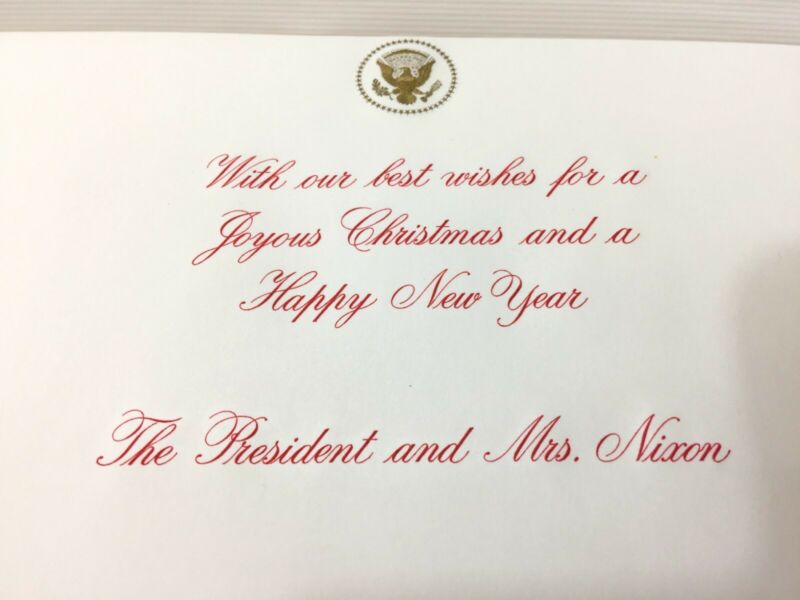 With our best wishes for a
Joyous Christmas and a
Happy New Year
The President and Mrs. Nixon